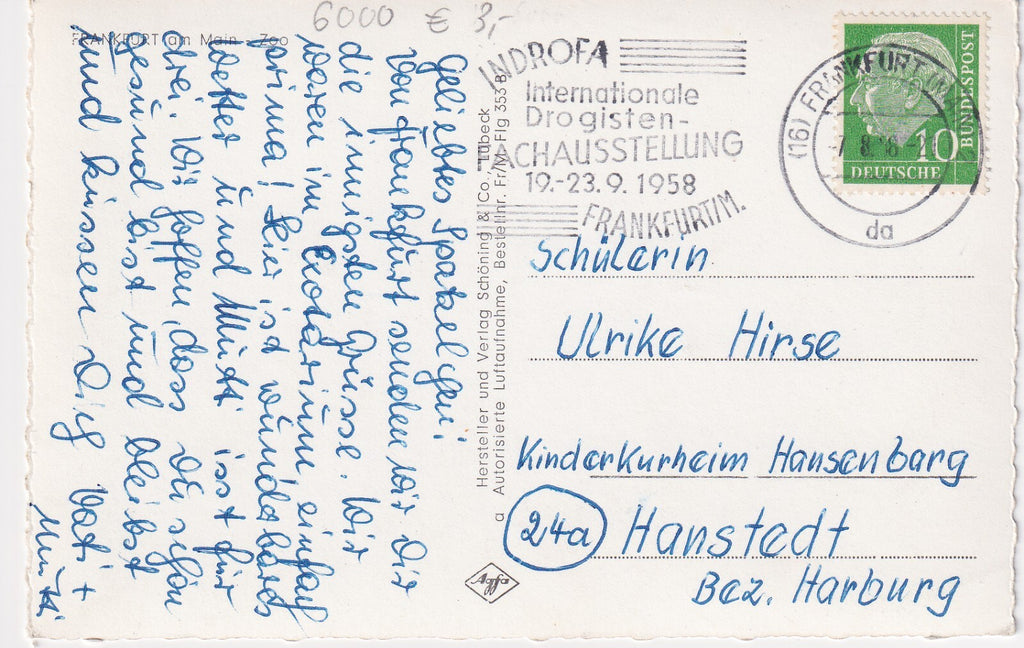 6000 € 3,-
FRANKFURT am Main - Zoo
INDROFA
Internationale
Drogisten-
FACHAUSSTELLUNG
19.-23.9.1958
FRANKFURT/M.
(16) FRANKFURT(M
7.8.
da
10
BUNDESPOST
DEUTSCHE
Geliebtes Spatzelchen!
Von Frankfurt senden wir Dir
die innigsten Grüsse. Wir
waren im Exotarium, einfach
prima! Hier ist wunderbares
Wetter und Mutti isst für
drei. Wir hoffen, dass Du schön
gesund bist und bleibst
und küssen Dich Vati +
Mutti
Hersteller und Verlag Schöning & Co., Lübeck
a Autorisierte Luftaufnahme, Bestellnr. Fr/M Flg 353 B
Agfa
Schülerin
Ulrike Hirse
Kinderkurheim Hansenbarg
24a Hanstedt
Bez. Harburg